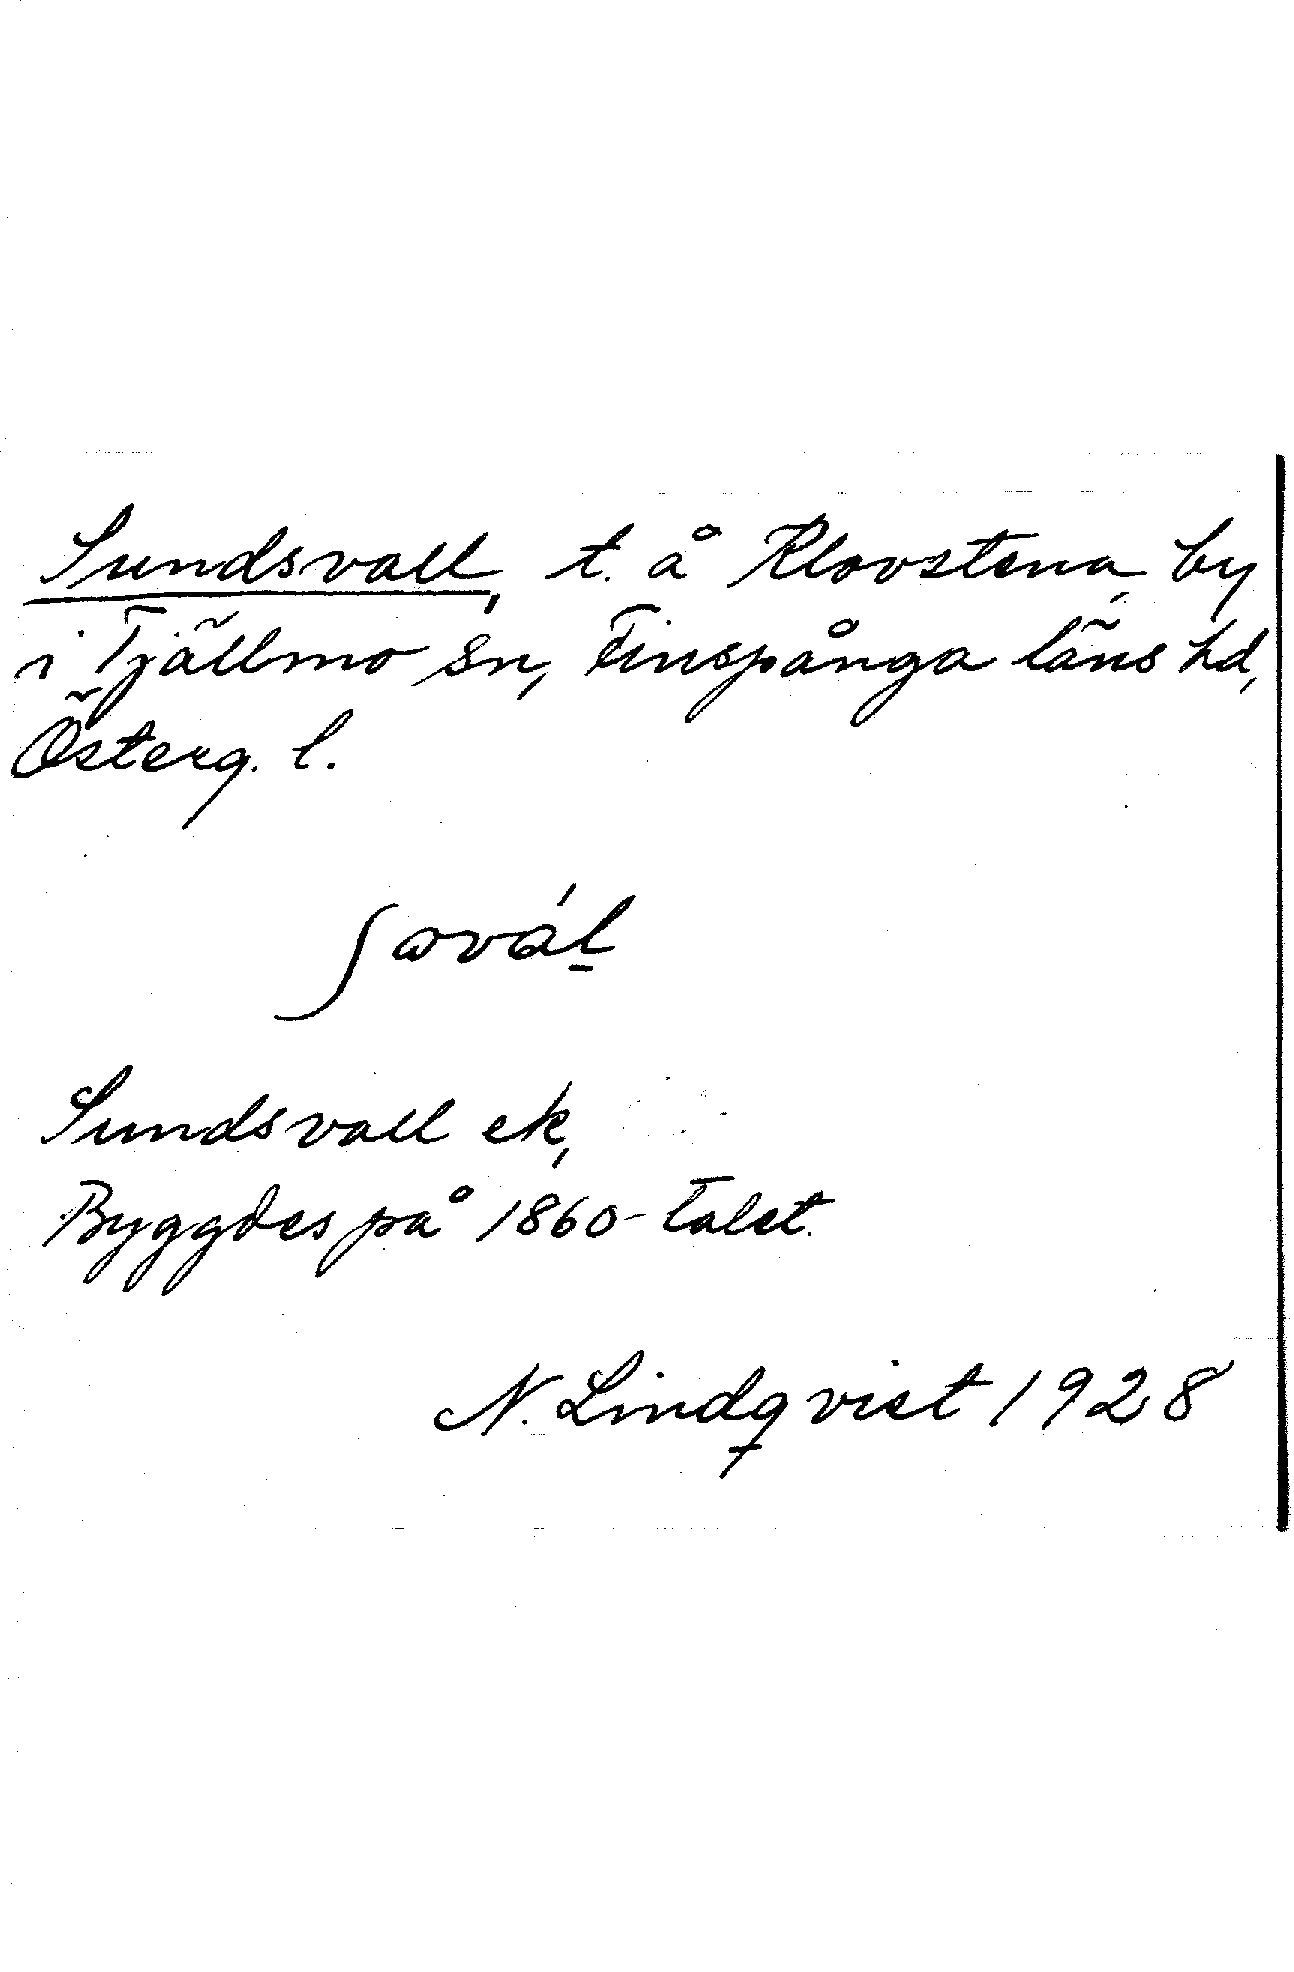 Sundsvall, t. å Klovstena, by
i Tjällmo sn, Finspånga läns hd,
Österg. l.
Sundsvall ek,
Byggdes på 1860-talet.
N. Lindqvist 1928